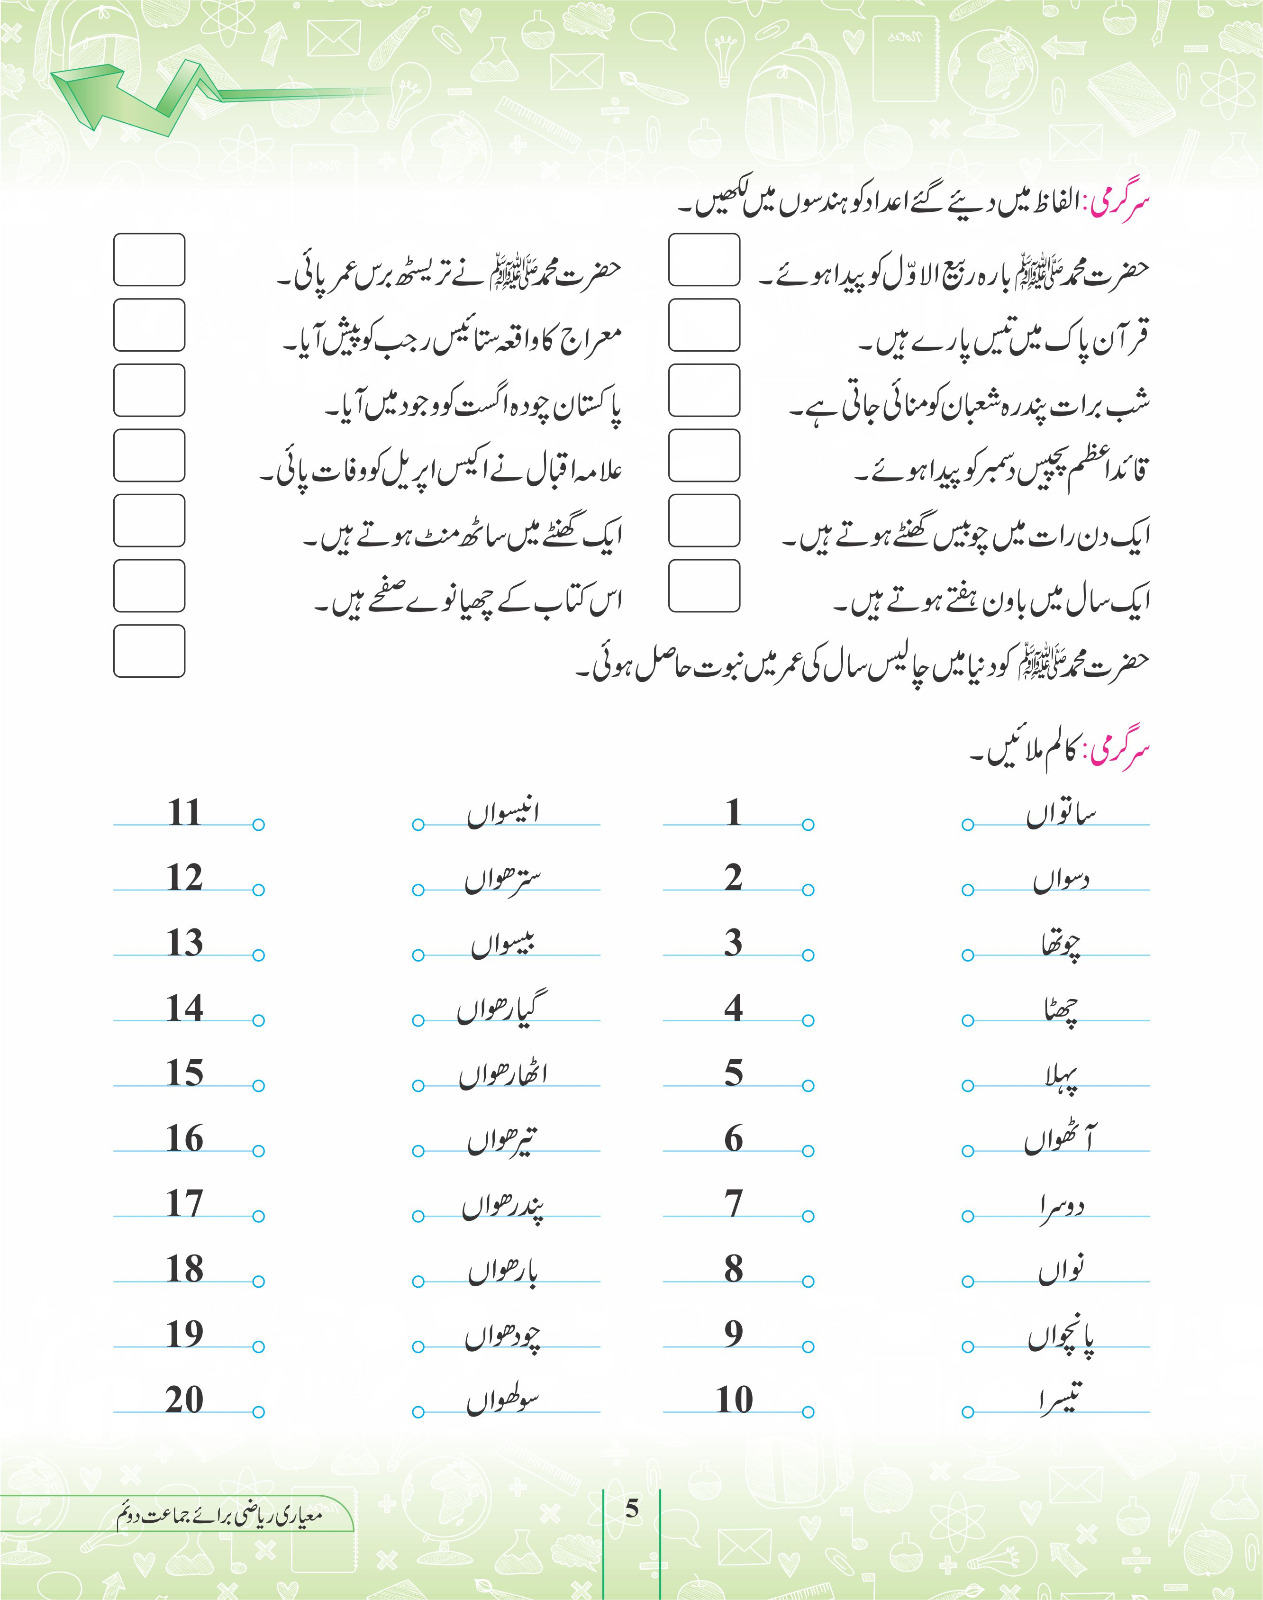 سرگرمی: الفاظ میں دیئے گئے اعداد کو ہندسوں میں لکھیں۔
حضرت محمد ﷺ بارہ ربیع الاوّل کو پیدا ہوئے۔ حضرت محمد ﷺ نے تریسٹھ برس عمر پائی۔
قرآن پاک میں تیس پارے ہیں۔ معراج کا واقعہ ستائیس رجب کو پیش آیا۔
شب برات پندرہ شعبان کو منائی جاتی ہے۔ پاکستان چودہ اگست کو وجود میں آیا۔
قائد اعظم پچیس دسمبر کو پیدا ہوئے۔ علامہ اقبال نے اکیس اپریل کو وفات پائی۔
ایک دن رات میں چوبیس گھنٹے ہوتے ہیں۔ ایک گھنٹے میں ساٹھ منٹ ہوتے ہیں۔
ایک سال میں باون ہفتے ہوتے ہیں۔ اس کتاب کے چھیانوے صفحے ہیں۔
حضرت محمد ﷺ کو دنیا میں چالیس سال کی عمر میں نبوت حاصل ہوئی۔
سرگرمی: کالم ملائیں۔
ساتواں 1 انیسواں 11
دسواں 2 سترھواں 12
چوتھا 3 بیسواں 13
چھٹا 4 گیارھواں 14
پہلا 5 اٹھارھواں 15
آٹھواں 6 تیرھواں 16
دوسرا 7 پندرھواں 17
نواں 8 بارھواں 18
پانچواں 9 چودھواں 19
تیسرا 10 سولھواں 20
5
معیاری ریاضی برائے جماعت دوئم